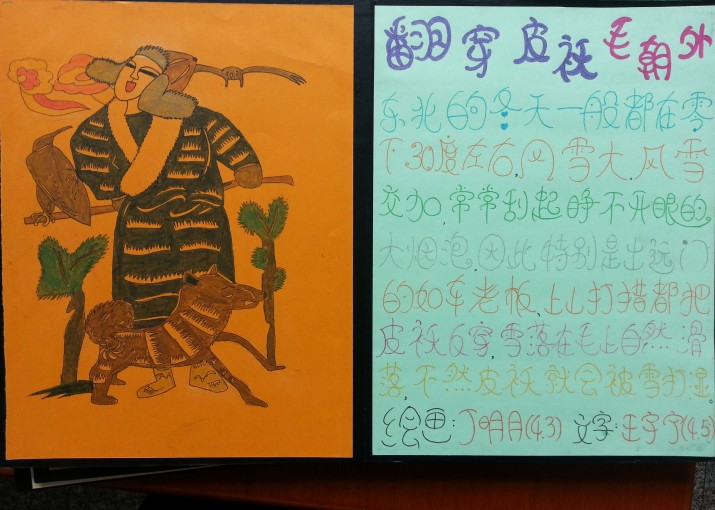 翻穿皮袄毛朝外
东北的冬天一般都在零
下30度左右,风雪大,风雪
交加,常常刮起睁不开眼的
大烟泡,因此特别是出远门
的如车老板,上山打猎都把
皮袄反穿,雪落在毛上自然滑
落,不然皮袄就会被雪打湿。
绘画:丁明月(4.3) 文字:王宇宁(4.5)